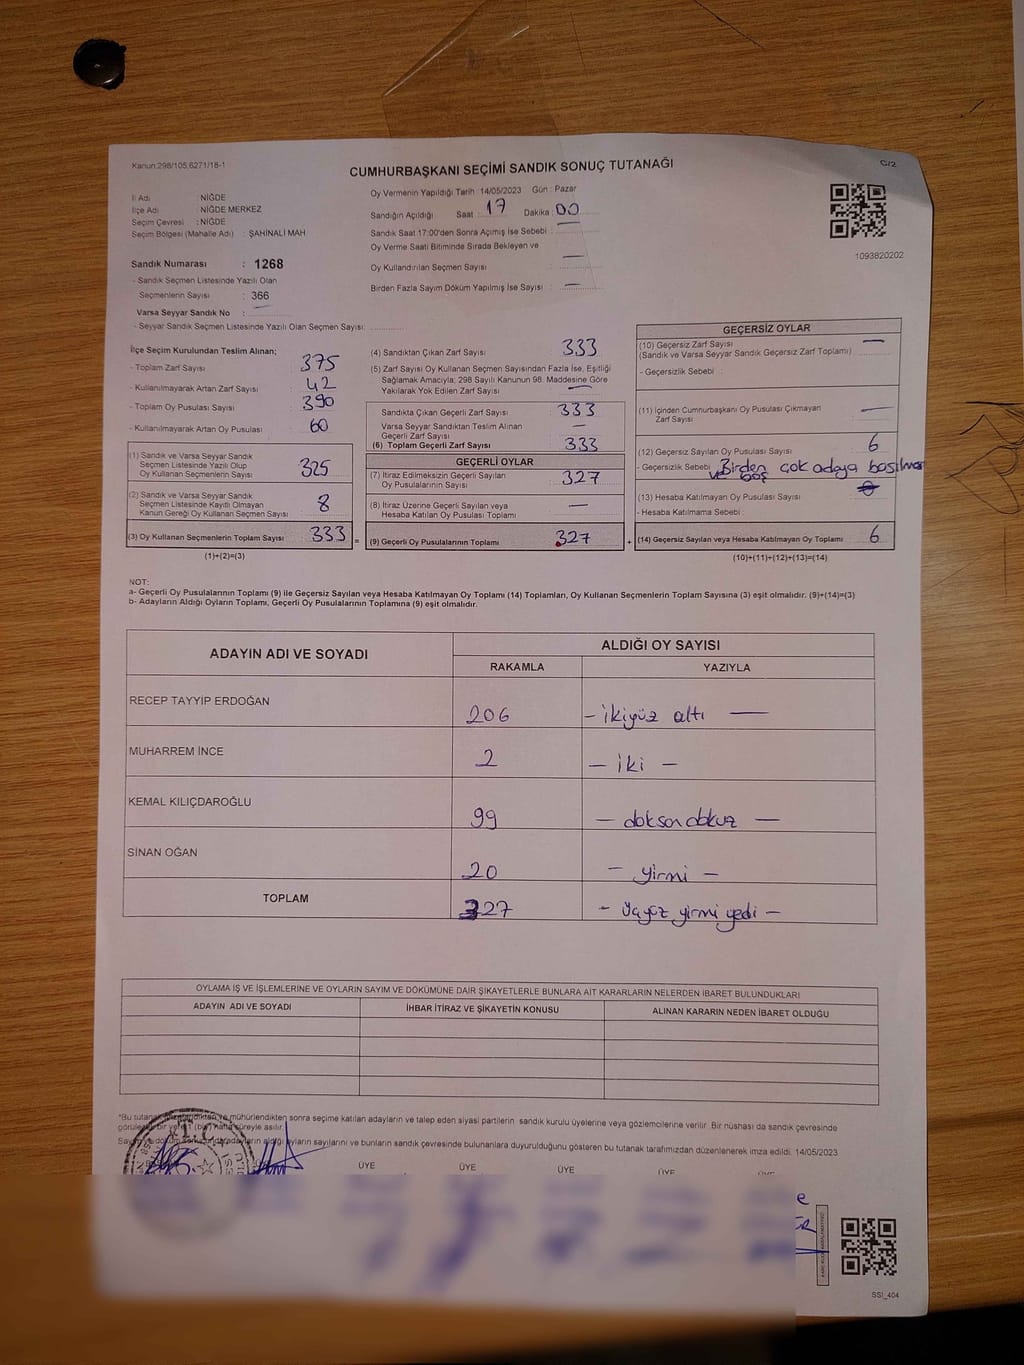 Kanun:298/105,6271/18-1
CUMHURBAŞKANI SEÇİMİ SANDIK SONUÇ TUTANAĞI
C/2
İl Adı : NİĞDE
İlçe Adı : NİĞDE MERKEZ
Seçim Çevresi : NİĞDE
Seçim Bölgesi (Mahalle Adı) : ŞAHİNALİ MAH
Sandık Numarası : 1268
- Sandık Seçmen Listesinde Yazılı Olan
Seçmenlerin Sayısı : 366
Varsa Seyyar Sandık No :
- Seyyar Sandık Seçmen Listesinde Yazılı Olan Seçmen Sayısı:
Oy Vermenin Yapıldığı Tarih :14/05/2023 Gün : Pazar
Sandığın Açıldığı Saat : 17 Dakika : 00
Sandık Saat 17:00'den Sonra Açılmış İse Sebebi : —
Oy Verme Saati Bitiminde Sırada Bekleyen ve
Oy Kullandırılan Seçmen Sayısı : —
Birden Fazla Sayım Döküm Yapılmış İse Sayısı : —
1093820202
İlçe Seçim Kurulundan Teslim Alınan;
- Toplam Zarf Sayısı : 375
- Kullanılmayarak Artan Zarf Sayısı : 42
- Toplam Oy Pusulası Sayısı : 390
- Kullanılmayarak Artan Oy Pusulası : 60
(1) Sandık ve Varsa Seyyar Sandık
Seçmen Listesinde Yazılı Olup
Oy Kullanan Seçmenlerin Sayısı : 325
(2) Sandık ve Varsa Seyyar Sandık
Seçmen Listesinde Kayıtlı Olmayan
Kanun Gereği Oy Kullanan Seçmen Sayısı : 8
(3) Oy Kullanan Seçmenlerin Toplam Sayısı : 333
(1)+(2)=(3)
=
(4) Sandıktan Çıkan Zarf Sayısı : 333
(5) Zarf Sayısı Oy Kullanan Seçmen Sayısından Fazla İse, Eşitliği
Sağlamak Amacıyla; 298 Sayılı Kanunun 98. Maddesine Göre
Yakılarak Yok Edilen Zarf Sayısı : —
Sandıkta Çıkan Geçerli Zarf Sayısı : 333
Varsa Seyyar Sandıktan Teslim Alınan
Geçerli Zarf Sayısı : —
(6) Toplam Geçerli Zarf Sayısı : 333
GEÇERLİ OYLAR
(7) İtiraz Edilmeksizin Geçerli Sayılan
Oy Pusulalarının Sayısı : 327
(8) İtiraz Üzerine Geçerli Sayılan veya
Hesaba Katılan Oy Pusulası Toplamı : —
(9) Geçerli Oy Pusulalarının Toplamı : 327
+
GEÇERSİZ OYLAR
(10) Geçersiz Zarf Sayısı : —
(Sandık ve Varsa Seyyar Sandık Geçersiz Zarf Toplamı)
- Geçersizlik Sebebi :
(11) İçinden Cumhurbaşkanı Oy Pusulası Çıkmayan
Zarf Sayısı : —
(12) Geçersiz Sayılan Oy Pusulası Sayısı : 6
- Geçersizlik Sebebi : Birden çok adaya basılması
ve boş
(13) Hesaba Katılmayan Oy Pusulası Sayısı :
- Hesaba Katılmama Sebebi :
(14) Geçersiz Sayılan veya Hesaba Katılmayan Oy Toplamı : 6
(10)+(11)+(12)+(13)=(14)
NOT:
a- Geçerli Oy Pusulalarının Toplamı (9) ile Geçersiz Sayılan veya Hesaba Katılmayan Oy Toplamı (14) Toplamları, Oy Kullanan Seçmenlerin Toplam Sayısına (3) eşit olmalıdır. (9)+(14)=(3)
b- Adayların Aldığı Oyların Toplamı, Geçerli Oy Pusulalarının Toplamına (9) eşit olmalıdır.
ADAYIN ADI VE SOYADI
ALDIĞI OY SAYISI
RAKAMLA YAZIYLA
RECEP TAYYİP ERDOĞAN 206 - ikiyüz altı —
MUHARREM İNCE 2 - iki -
KEMAL KILIÇDAROĞLU 99 - doksan dokuz -
SİNAN OĞAN 20 - yirmi -
TOPLAM 327 - üçyüz yirmi yedi -
OYLAMA İŞ VE İŞLEMLERİNE VE OYLARIN SAYIM VE DÖKÜMÜNE DAİR ŞİKAYETLERLE BUNLARA AİT KARARLARIN NELERDEN İBARET BULUNDUKLARI
ADAYIN ADI VE SOYADI İHBAR İTİRAZ VE ŞİKAYETİN KONUSU ALINAN KARARIN NEDEN İBARET OLDUĞU
*Bu ve mühürlendikten sonra seçime katılan adayların ve talep eden siyasi partilerin sandık kurulu üyelerine veya gözlemcilerine verilir. Bir nüshası da sandık çevresinde
bir yere (bir) hafta süreyle asılır.
aldığı oyların sayılarını ve bunların sandık çevresinde bulunanlara duyurulduğunu gösteren bu tutanak tarafımızdan düzenlenerek imza edildi. 14/05/2023
ÜYE ÜYE ÜYE ÜYE ÜYE
SSİ_404